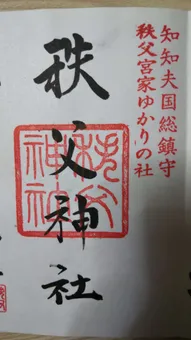 知知夫国総鎮守
秩父宮家ゆかりの社
秩父神社
秩父
神社